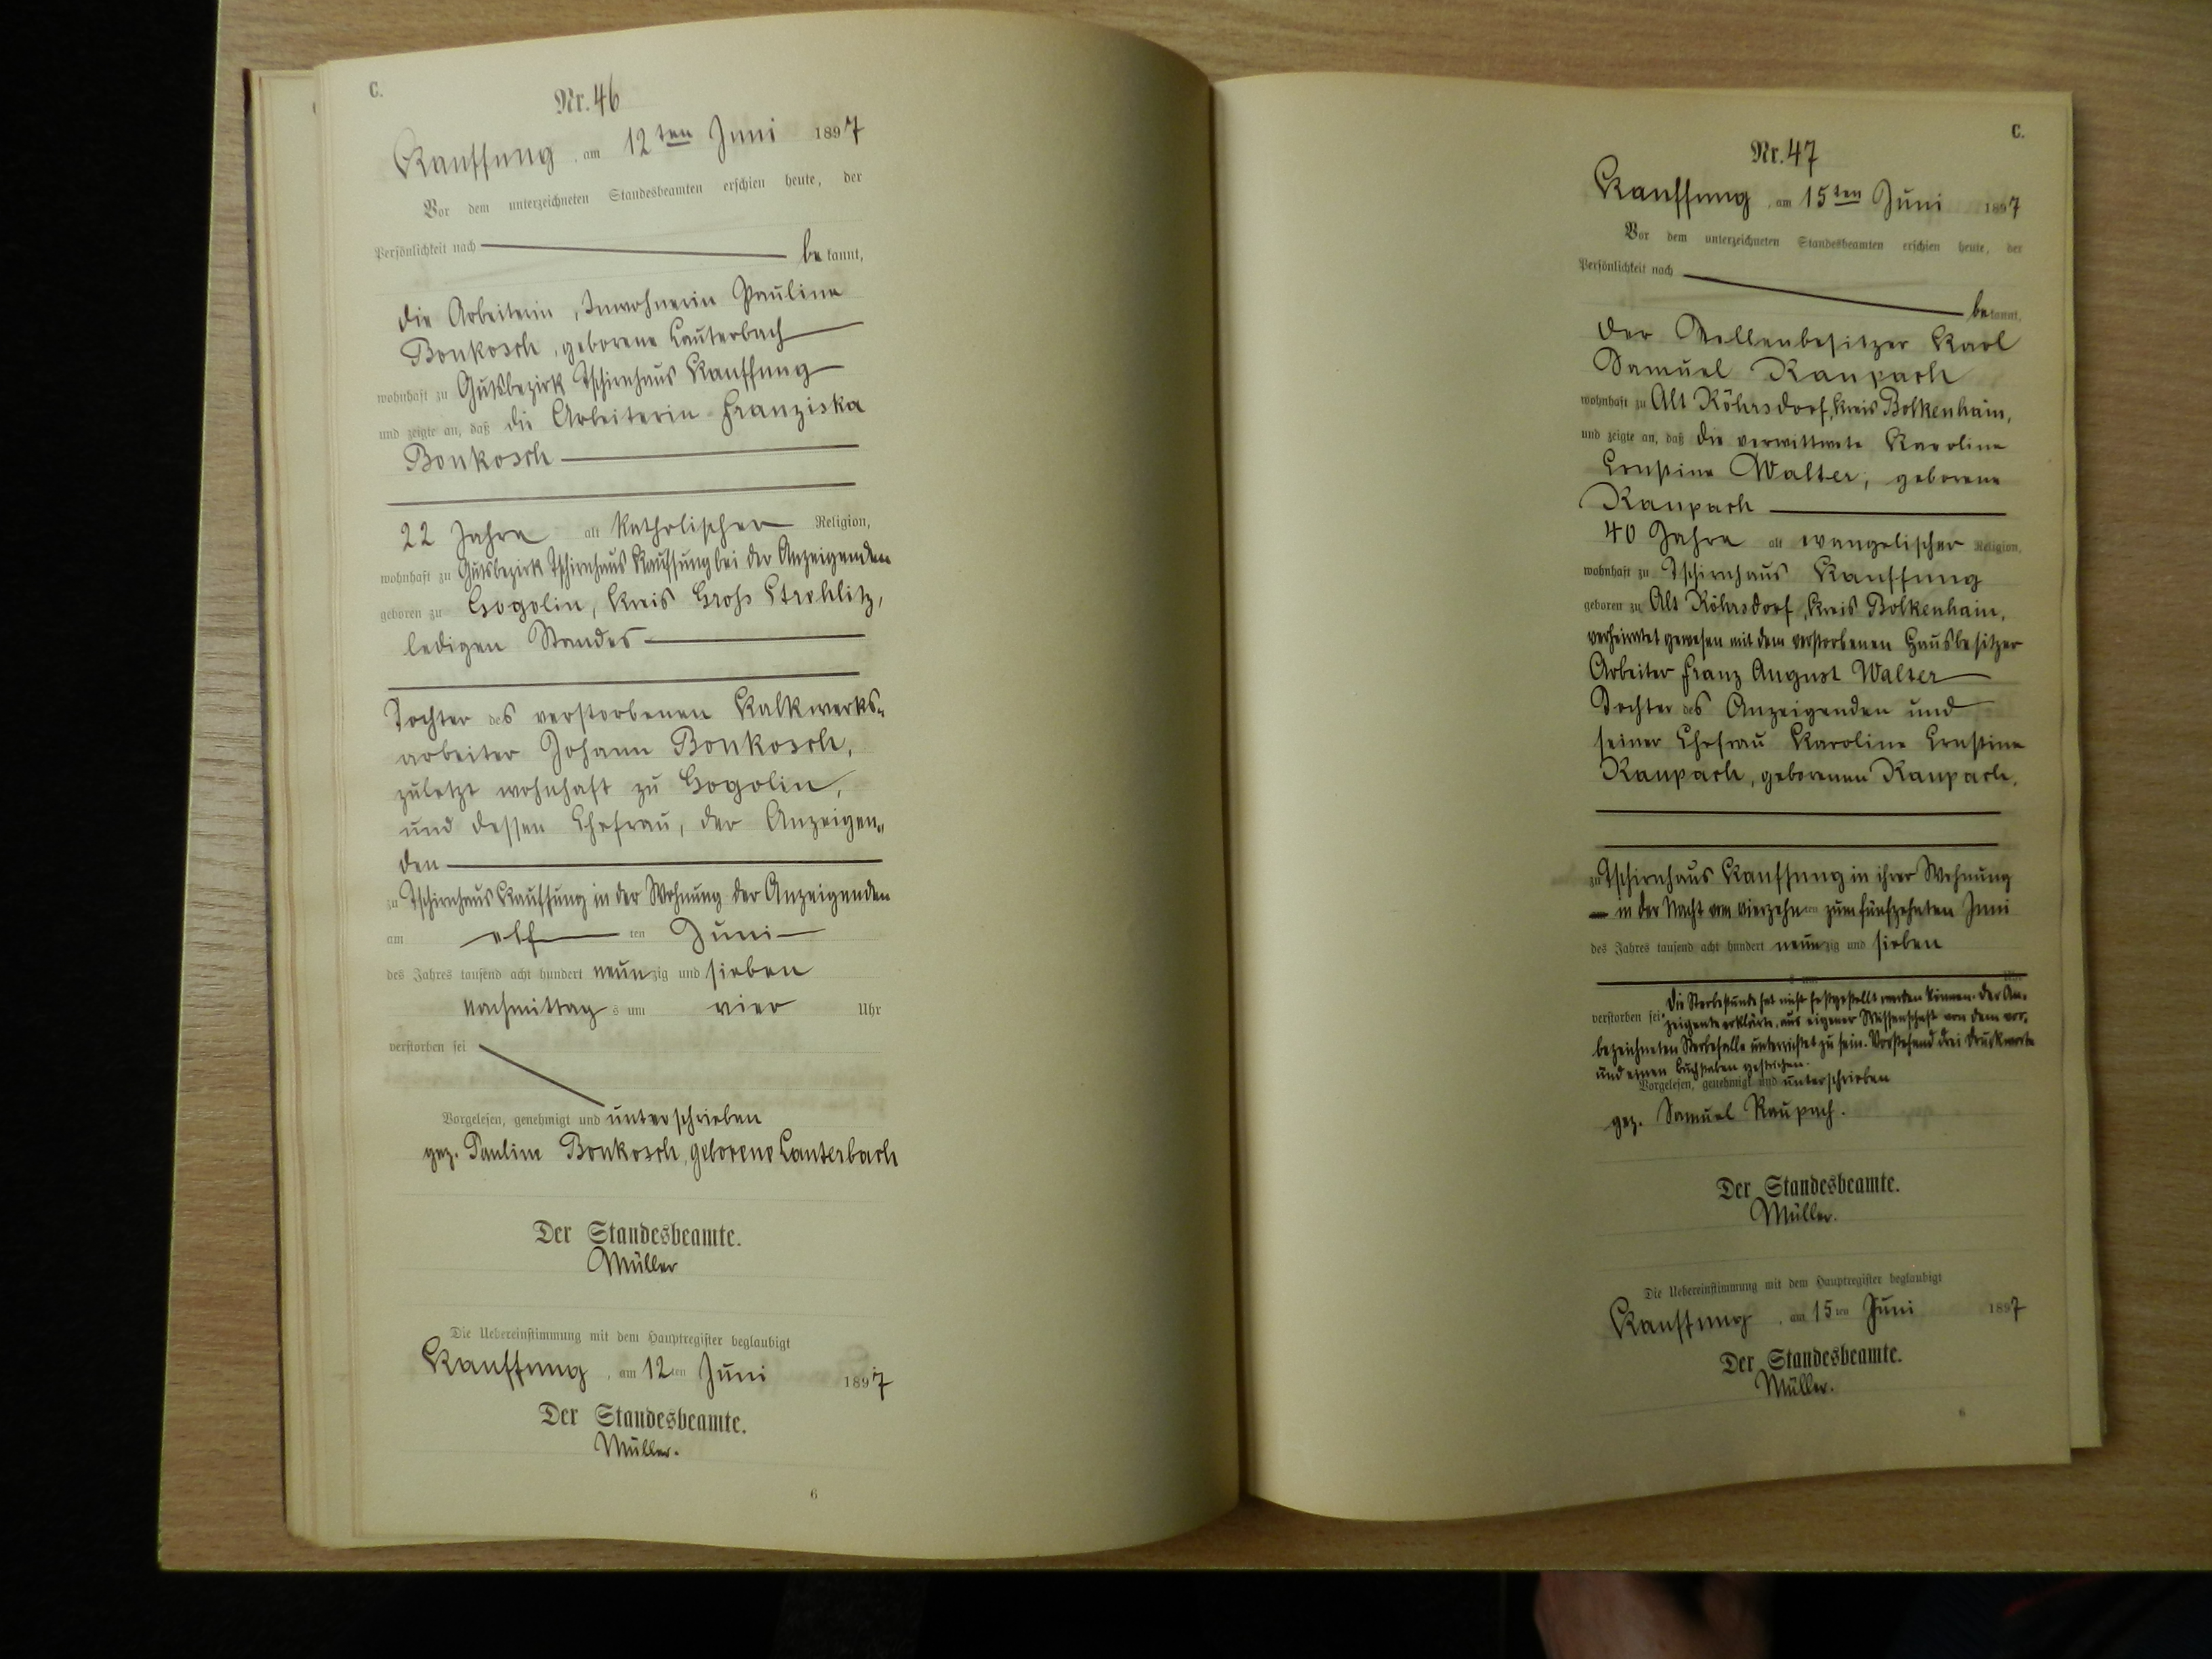 C.
Nr. 46
Kauffung, am 12ten Juni 1897
Vor dem unterzeichneten Standesbeamten erschien heute, der
Persönlichkeit nach be kannt,
die Arbeiterin, Inwohnerin Pauline
Bonkosch, geborene Lauterbach
wohnhaft zu Gutsbezirk Tschirnhaus Kauffung
und zeigte an, daß die Arbeiterin Franziska
Bonkosch
22 Jahre alt katholischer Religion,
wohnhaft zu Gutsbezirk Tschirnhaus Kauffung bei der Anzeigenden
geboren zu Gogolin, Kreis Groß Strehlitz,
ledigen Standes
Tochter des verstorbenen Kalkwerks-
arbeiter Johann Bonkosch,
zuletzt wohnhaft zu Gogolin,
und dessen Ehefrau, der Anzeigen-
den
zu Tschirnhaus Kauffung in der Wohnung der Anzeigenden
am elf ten Juni
des Jahres tausend acht hundert neunzig und sieben
Nachmittags um vier Uhr
verstorben sei
Vorgelesen, genehmigt und unterschrieben
gez. Pauline Bonkosch, geborene Lauterbach
Der Standesbeamte.
Müller
Die Uebereinstimmung mit dem Hauptregister beglaubigt
Kauffung, am 12ten Juni 1897
Der Standesbeamte.
Müller.
6
C.
Nr. 47
Kauffung, am 15ten Juni 1897
Vor dem unterzeichneten Standesbeamten erschien heute, der
Persönlichkeit nach be kannt,
der Stellenbesitzer Karl
Samuel Raupach
wohnhaft zu Alt Röhrsdorf, Kreis Bolkenhain,
und zeigte an, daß die verwittwete Karoline
Ernstine Walter, geborene
Raupach
40 Jahre alt evangelischer Religion,
wohnhaft zu Tschirnhaus Kauffung
geboren zu Alt Röhrsdorf, Kreis Bolkenhain,
verheirathet gewesen mit dem verstorbenen Hausbesitzer
Arbeiter Franz August Walter
Tochter des Anzeigenden und
seiner Ehefrau Karoline Ernstine
Raupach, geborenen Raupach.
zu Tschirnhaus Kauffung in ihrer Wohnung
in der Nacht vom vierzehnten zum fünfzehnten Juni
des Jahres tausend acht hundert neunzig und sieben
Die Sterbestunde hat nicht festgestellt werden können. Der An-
verstorben sei. zeigende erklärte, aus eigener Wissenschaft von dem vor-
bezeichneten Sterbefalle unterrichtet zu sein. Vorstehend drei Druckworte
und einen Buchstaben gestrichen.
Vorgelesen, genehmigt und unterschrieben
gez. Samuel Raupach.
Der Standesbeamte.
Müller.
Die Uebereinstimmung mit dem Hauptregister beglaubigt
Kauffung, am 15ten Juni 1897
Der Standesbeamte.
Müller.
6